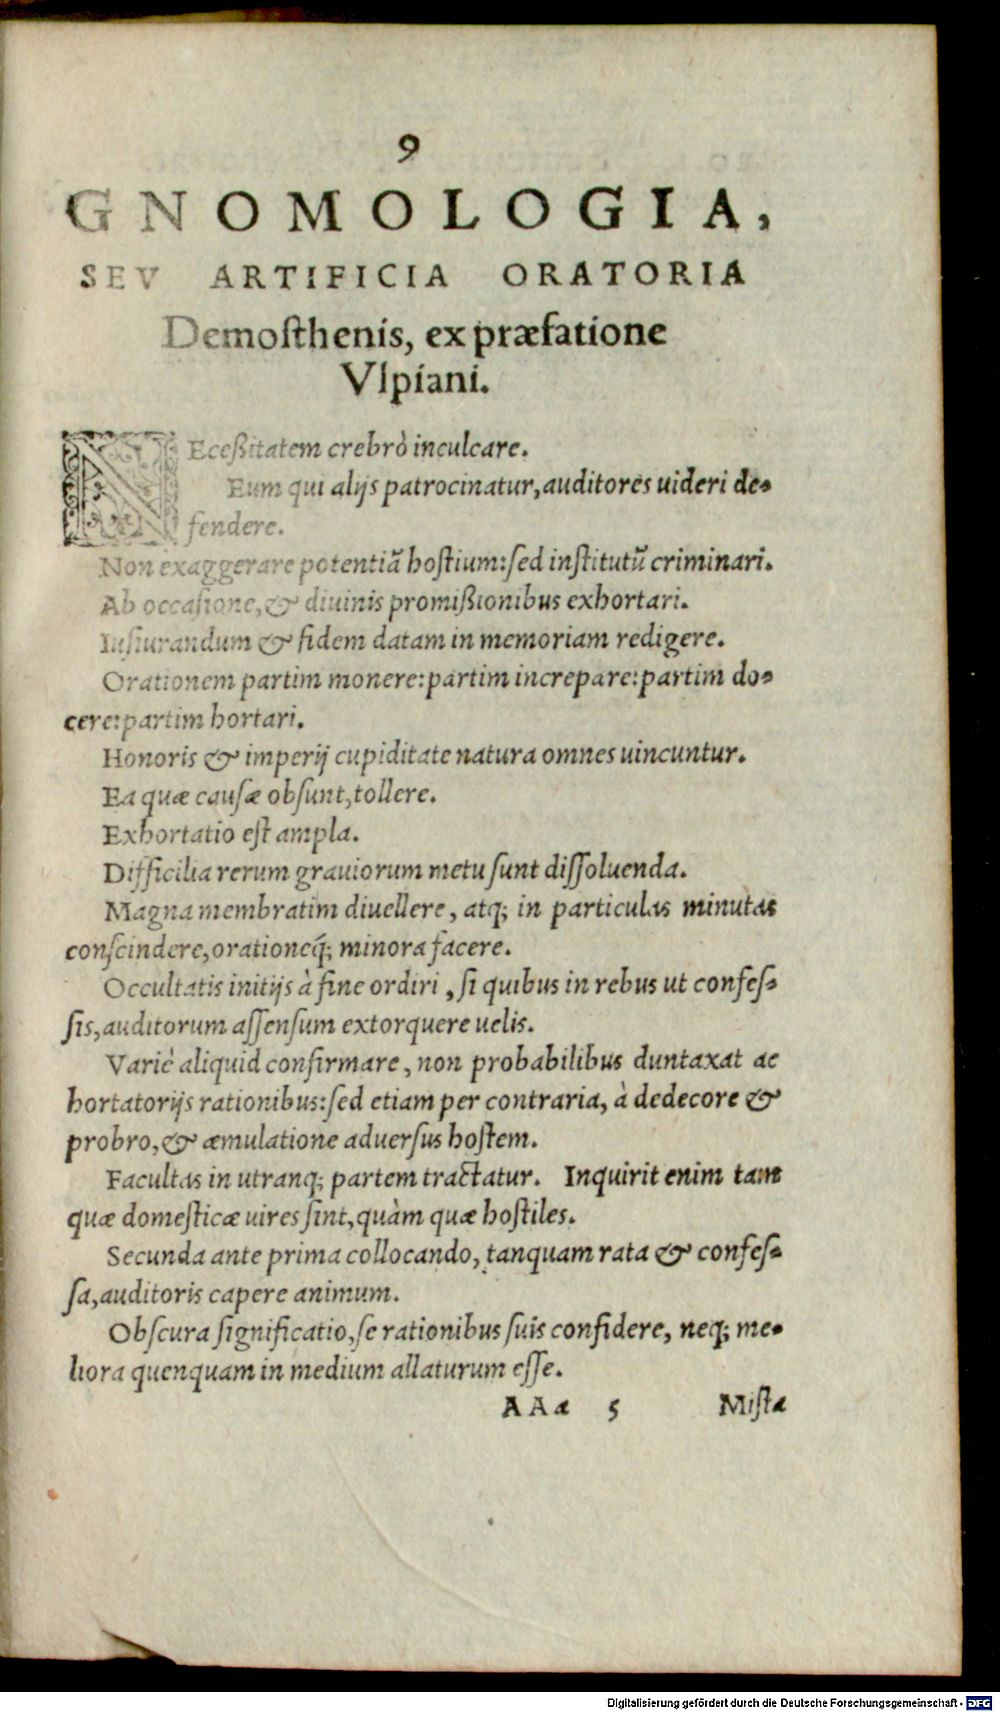 9
GNOMOLOGIA,
SEV ARTIFICIA ORATORIA
Demosthenis, ex præfatione
Vlpiani.
NEceßitatem crebrò inculcare.
Eum qui alijs patrocinatur, auditores uideri de-
fendere.
Non exaggerare potentiã hostium: sed institutũ criminari.
Ab occasione, & diuinis promißionibus exhortari.
Iusiurandum & fidem datam in memoriam redigere.
Orationem partim monere: partim increpare: partim do-
cere: partim hortari.
Honoris & imperij cupiditate natura omnes uincuntur.
Ea quæ causæ obsunt, tollere.
Exhortatio est ampla.
Difficilia rerum grauiorum metu sunt dissoluenda.
Magna membratim diuellere, atq; in particulas minutas
conscindere, orationeq́; minora facere.
Occultatis initijs à fine ordiri, si quibus in rebus ut confes-
sis, auditorum assensum extorquere uelis.
Variè aliquid confirmare, non probabilibus duntaxat ac
hortatorijs rationibus: sed etiam per contraria, à dedecore &
probro, & æmulatione aduersus hostem.
Facultas in utranq; partem tractatur. Inquirit enim tam
quæ domesticæ uires sint, quàm quæ hostiles.
Secunda ante prima collocando, tanquam rata & confes-
sa, auditoris capere animum.
Obscura significatio, se rationibus suis confidere, neq; me-
liora quenquam in medium allaturum esse.
AAa 5 Mista
Digitalisierung gefördert durch die Deutsche Forschungsgemeinschaft - DFG